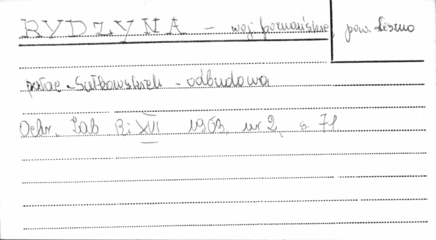 RYDZYNA - woj. poznańskie, pow. Leszno
pałac Sułkowskich - odbudowa
Ochr. Zab R: XVI 1963 nr 2, s. 71